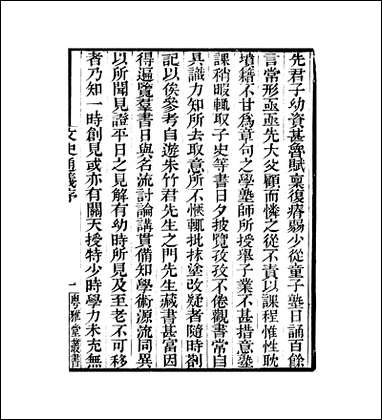 先君子幼資甚魯賦稟復瘠弱少從童子塾日誦百餘
言常形亟亟先大父顧而憐之從不責以課程惟性耽
墳籍不甘爲章句之學塾師所授舉子業不甚措意塾
課稍暇輒取子史等書日夕披覽孜孜不倦觀書常自
具識力知所去取意所不愜輒批抹塗改疑者隨時劄
記以俟參考自遊朱竹君先生之門先生藏書甚富因
得遍覽羣書日與名流討論講貫備知學術源流同異
以所聞見證平日之見解有幼時所見及至老不可移
者乃知一時創見或亦有關天授特少時學力未充無
文史通義序
一
粵雅堂叢書